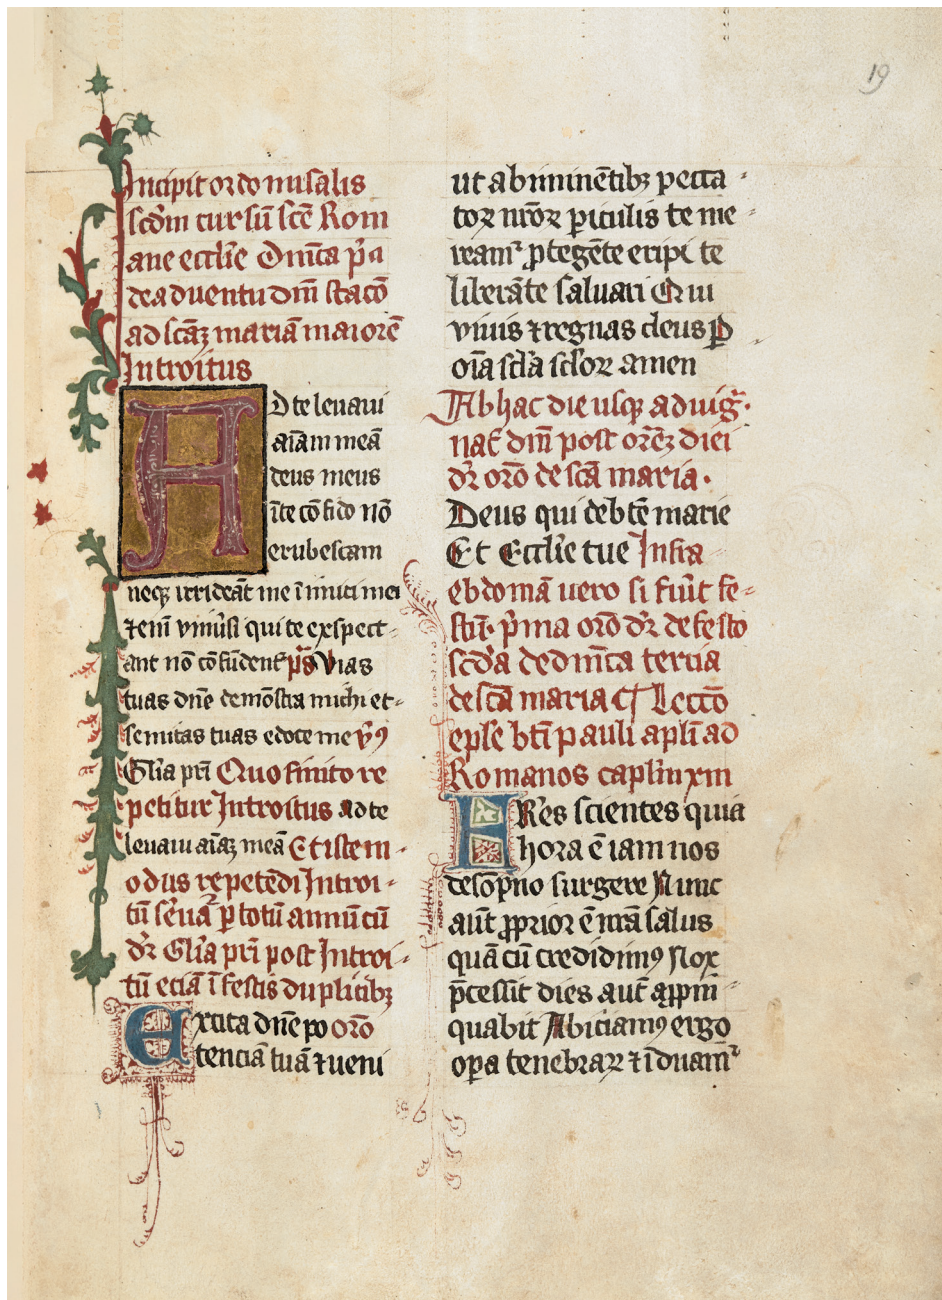 19
Incipit ordo misalis
scd̄m cursū scē Rom
ane eccl̄ie Dn̄ica pͥa
de aduentu dn̄i stacō
ad scāꝫ mariā maiorē
Introitus
AD te leuaui
aīam meā
deus meus
ī te cōfido nō
erubescam
neqꝫ irrideāt me īimici mei
⁊ eni᷒ vniũsi qui te exspect-
ant nō cōfūdent᷑ p̄s Vias
tuas dn̄e demōstra michi et-
semitas tuas edoce me v̄ꝰ
Gl̄ia pr̄i Quo finito re
petitur Introitus Ad te
leuaui aīaꝫ meā Et iste m-
odus repetēdi Introi-
tū seruat᷑ ꝑ totū annū cū
dr̄ Gl̄ia pr̄i post Introi-
tū eciā ī festis duplicibꝫ
Excita dn̄e po orō
tenciā tuā ⁊ ueni
ut ab iminētibꝫ pecca-
toꝝ nr̄oꝝ ꝑiculis te me-
reamᷣ ꝓtegēte eripi te
liberāte saluari Qui
viuis ⁊ regnas deus P
oīa scl̄a scl̄oꝝ amen
Ab hac die usqꝫ ad uig̃.
nat̄ dn̄i post orēꝫ diei
dr̄ orō de scā maria.
Deus qui de b̄tē marie
Et Eccl̄ie tue Infra
ebdomā uero si fūit fe-
stū. pͥma orō dr̄ de festo
scd̄a de dn̄ica tercia
de scā maria ¶ Leccō
epl̄e bt̄i pauli apl̄i ad
Romanos capl̄m xiii
FRes scientes quia
hora ē iam nos
de sōpno surgere Nunc
aūt ꝓprior ē nr̄a salus
quā cū credidimꝰ Nox
p̄cessit dies aut̄ aꝓpin-
quabit Abiciamꝰ ergo
oꝑa tenebraꝝ ⁊ īduamᷣ